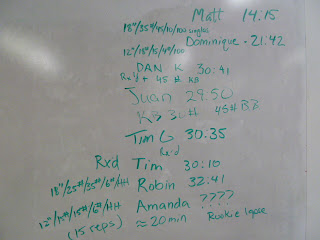 Matt 14:15
18"/35#/45/10/100 singles
Dominique - 21:42
12"/15#/15/4#/100
DAN K 30:41
Rx'd + 45# KB
Juan 29:50
KB 30# 45# BB
Tim G 30:35
Rx'd
Rxd Tim 30:10
18"/25#/35#/6#/HH Robin 32:41
12"/15#/15#/6#/HH Amanda ????
(15 reps) ≈20min Rookie